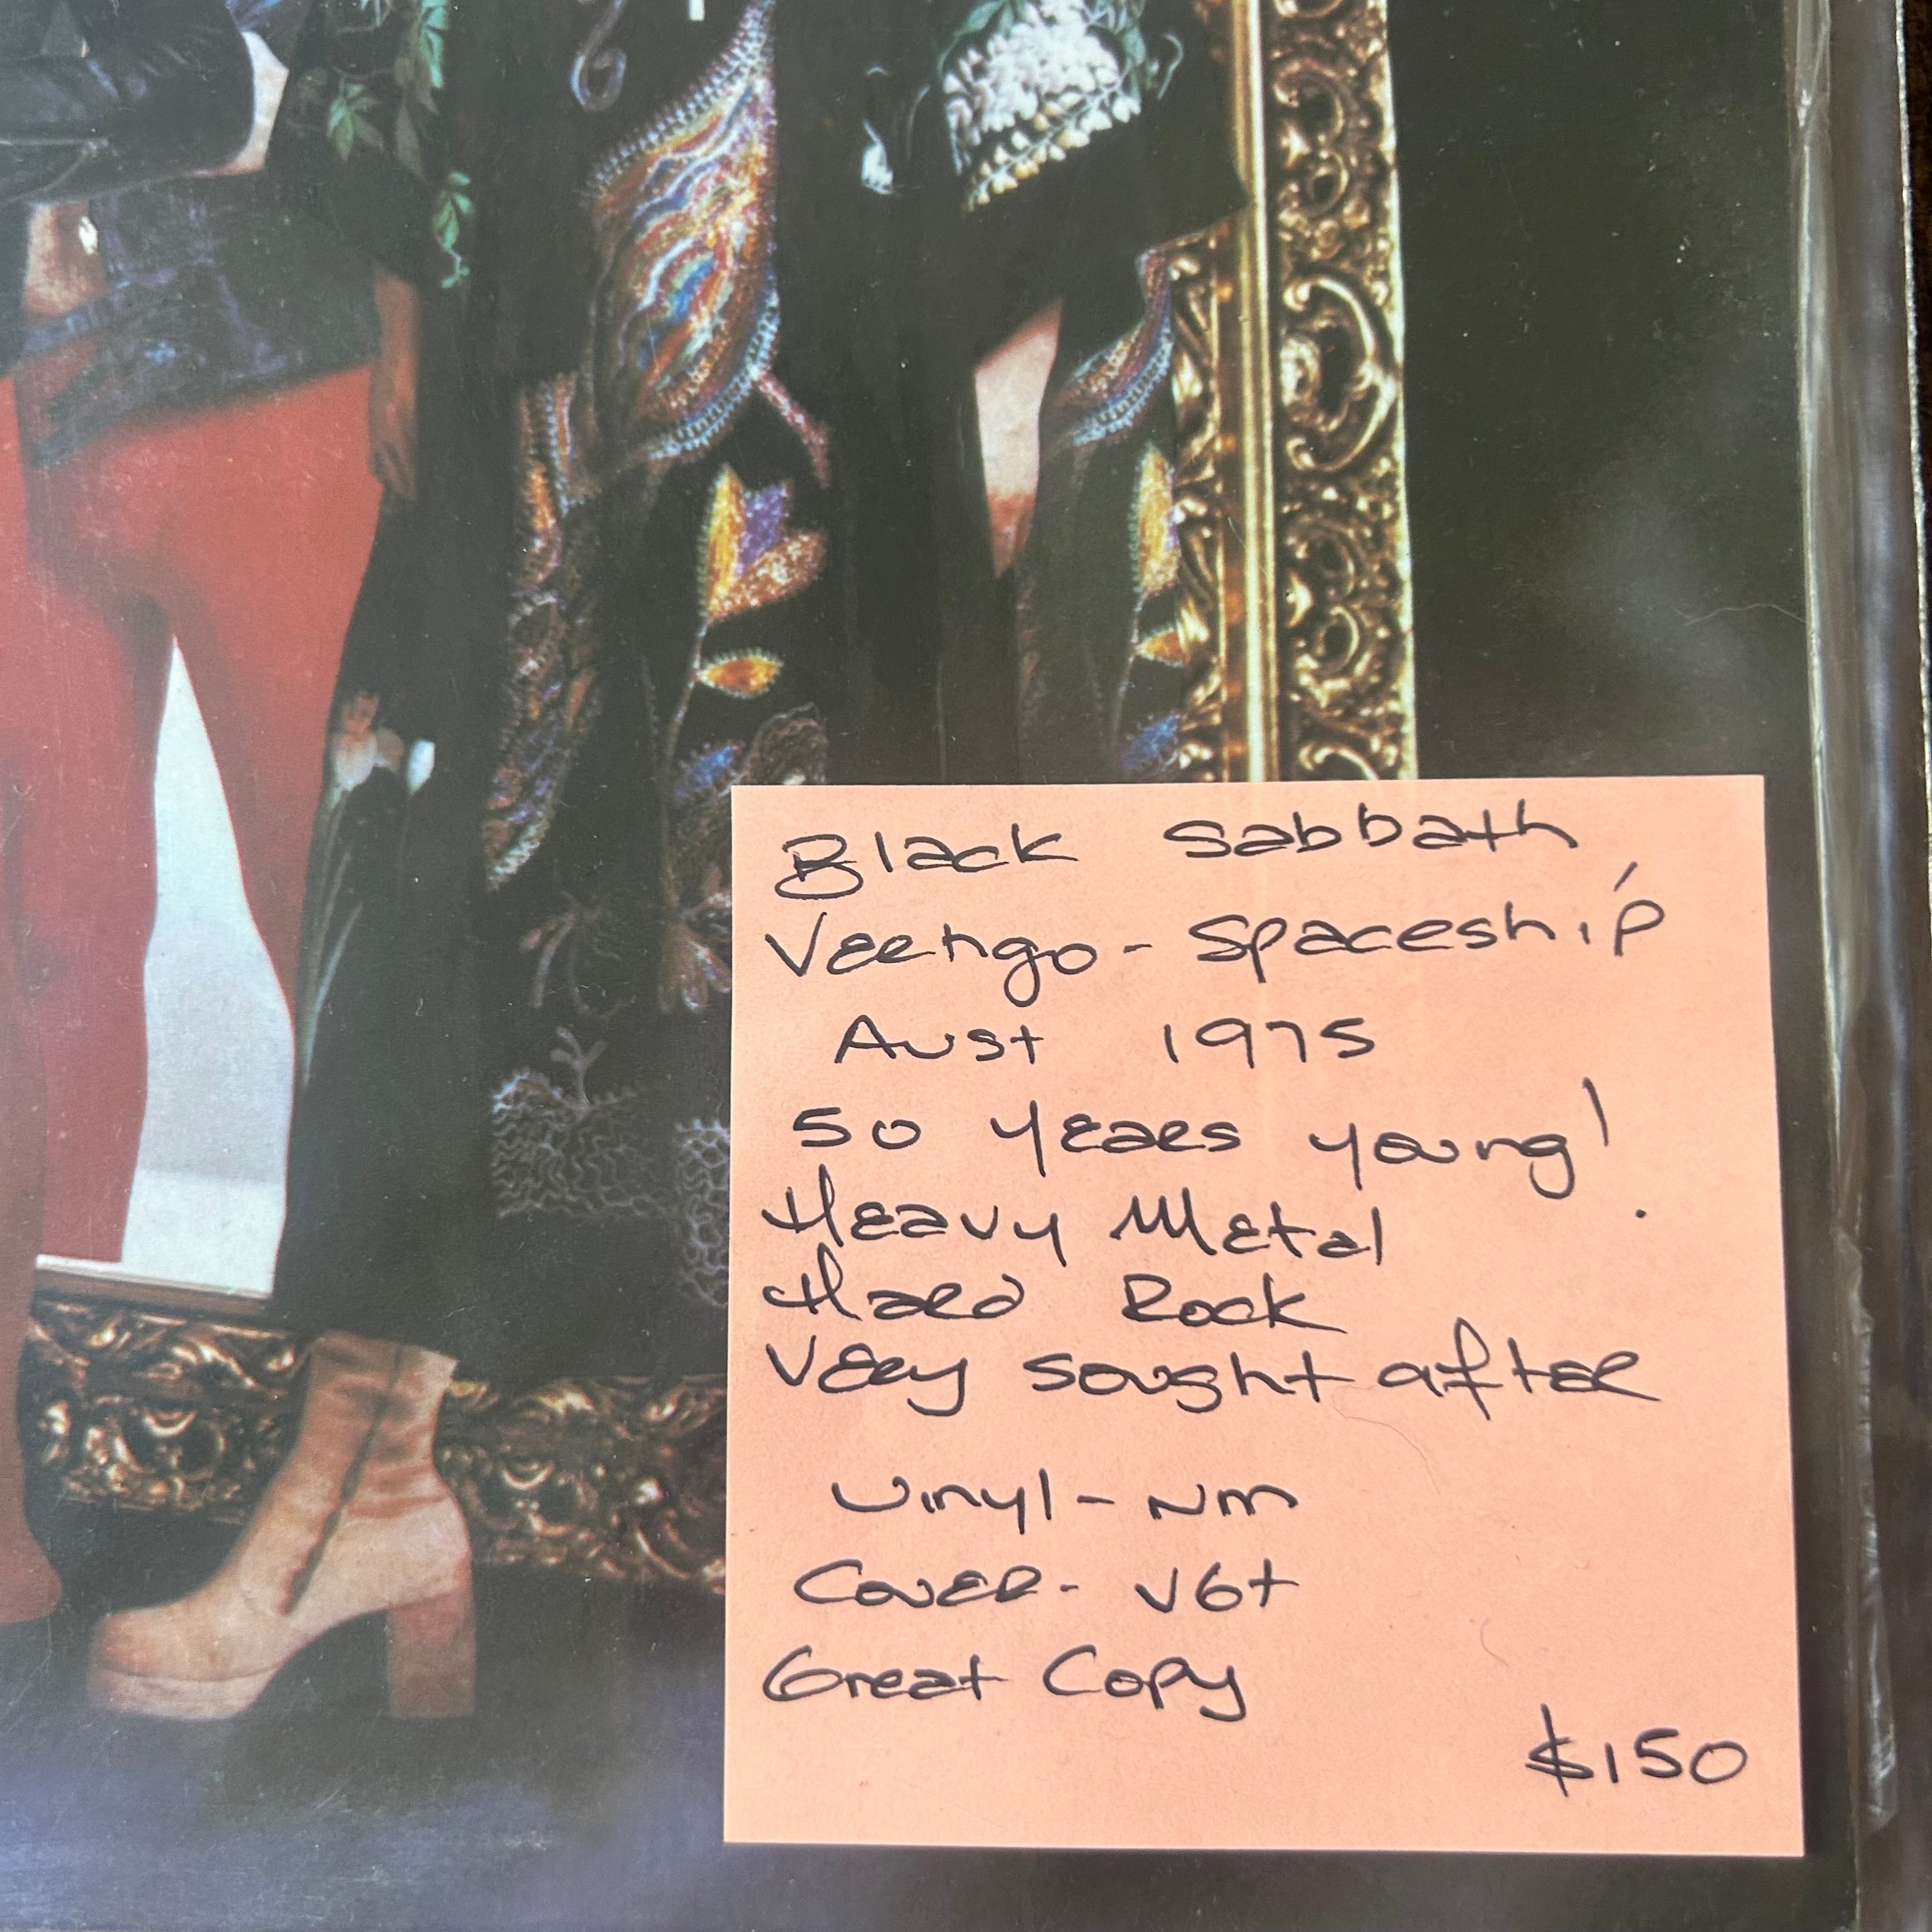 Black Sabbath
Vertigo - Spaceship
Aust 1975
50 years young!
Heavy Metal
Hard Rock
Very sought after
Vinyl - NM
Cover - VG+
Great Copy
$150